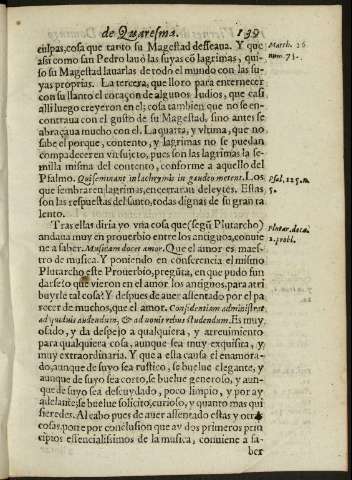 de Quaresma. 139
culpas, cosa que tanto su Magestad desseaua. Y que
assi como san Pedro lauò las suyas cõ lagrimas, qui-
so su Magestad lauarlas de todo el mundo con las su-
yas proprias. La tercera, que lloro para enternecer
con su llanto el coraçon de algunos Iudios, que casi
alli luego creyeron en el; cosa tambien que no se en-
contraua con el gusto de su Magestad, sino antes se
abraçaua mucho con el. La quarta, y vltima, que no
sabe el porque, contento, y lagrimas no se puedan
compadecer en vn sujeto, pues son las lagrimas la se-
milla misma del contento, conforme a aquello del
Psalmo. Qui seminant in lachrymis in gaudio metent. Los
que sembraren lagrimas, encerraran deleytes. Estas
son las respuestas del santo, todas dignas de su gran ta
lento.
Tras ellas diria yo vna cosa que (segũ Plutarcho)
andaua muy en prouerbio entre los antiguos, conuie
ne a saber. Musicam docet amor. Que el amor es maes-
tro de musica. Y poniendo en conferencia el mismo
Plutarcho este Prouerbio, pregũta, en que pudo fun
darse, ò que vieron en el amor los antiguos, para atri
buyrle tal cosa? Y despues de auer assentado por el pa
recer de muchos, que el amor. Confidentiam administrat
ad quiduis audendum, & ad nouis rebus studendum. Es muy
osido, y da despejo a qualquiera, y atreuimiento
para qualquiera cosa, aunque sea muy exquisita, y
muy extraordinaria. Y que a esta causa el enamora-
do, aunque de suyo sea rustico, se buelue elegante, y
aunque de suyo sea corto, se buelue generoso, y aun-
que de suyo sea descuydado, poco limpio, y por ay
adelante; se buelue solicito, curioso, y quanto mas qui
sieredes. Al cabo pues de auer assentado estas y otras
cosas, pone por conclusion que ay dos primeros prin
cipios essencialissimos de la musica, conuiene a sa-
ber
Match. 26
num. 75.
Psal. 125. n.
5.
Plutar. deca.
1. probl.